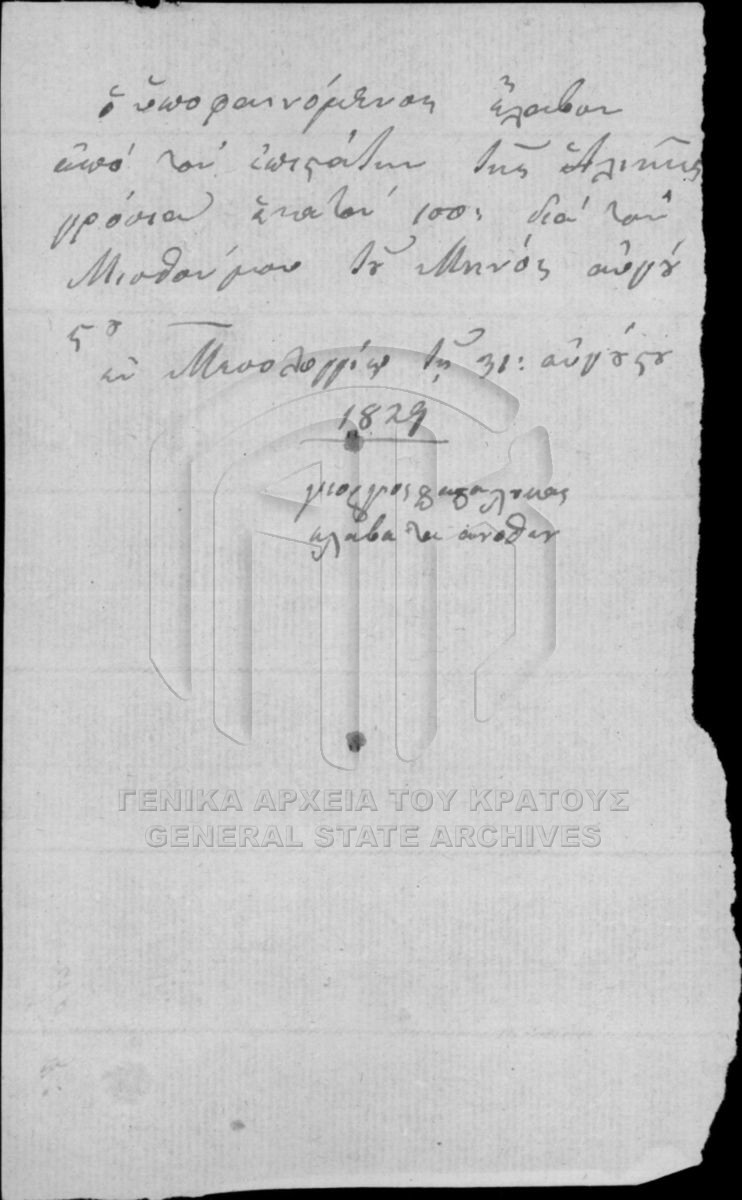 ὁ ὑποφαινόμενος ἔλαβον
ἀπό τον ἐπιστάτην τῆς ἁλικῆς
γρόσια ἑκατόν 100: διά τον
Μισθόν μου τοῦ Μηνός αὐγού
στου
ἐν Μεσολογγίῳ τῇ 31: αὐγούστου
1829
γιοργος
ελαβα τα ανοθεν
ΓΕΝΙΚΑ ΑΡΧΕΙΑ ΤΟΥ ΚΡΑΤΟΥΣ
GENERAL STATE ARCHIVES